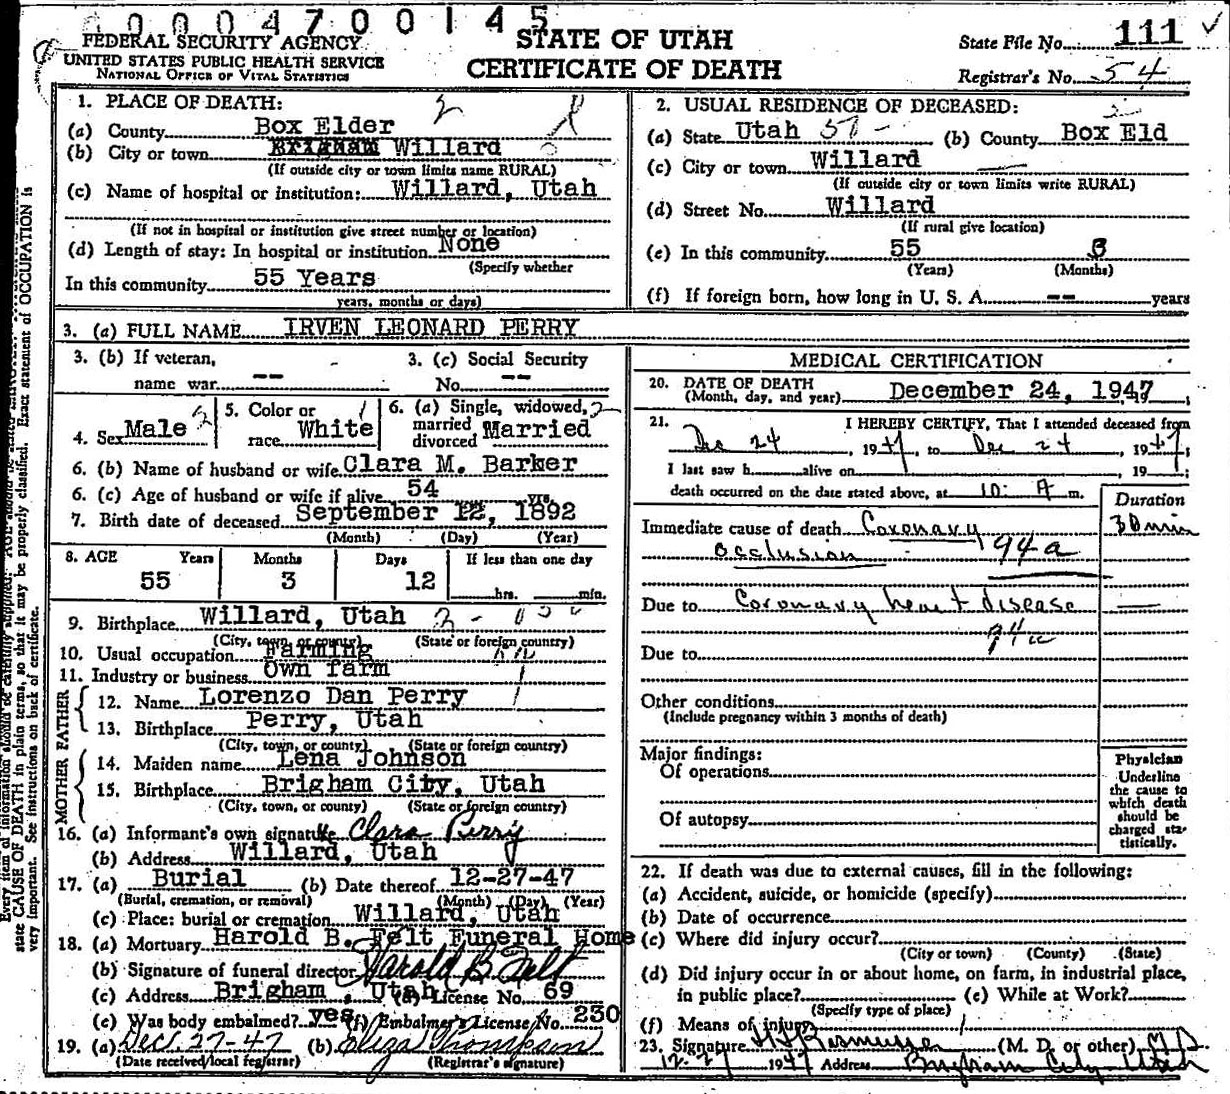 00004700145
FEDERAL SECURITY AGENCY
UNITED STATES PUBLIC HEALTH SERVICE
NATIONAL OFFICE OF VITAL STATISTICS
STATE OF UTAH
CERTIFICATE OF DEATH
State File No. 111
Registrar's No. 54
1. PLACE OF DEATH: 2
(a) County Box Elder
(b) City or town Brigham Willard
(If outside city or town limits name RURAL)
(c) Name of hospital or institution: Willard, Utah
(If not in hospital or institution give street number or location)
(d) Length of stay: In hospital or institution None
(Specify whether
In this community 55 Years
years, months or days)
2. USUAL RESIDENCE OF DECEASED:
(a) State Utah 57 - (b) County Box Eld
(c) City or town Willard
(If outside city or town limits write RURAL)
(d) Street No. Willard
(If rural give location)
(e) In this community 55 3
(Years) (Months)
(f) If foreign born, how long in U. S. A. -- years
3. (a) FULL NAME IRVEN LEONARD PERRY
3. (b) If veteran, 3. (c) Social Security
name war -- No. --
4. Sex Male 2
5. Color or race White 1
6. (a) Single, widowed, 2
married
divorced Married
6. (b) Name of husband or wife Clara M. Barker
6. (c) Age of husband or wife if alive 54 yrs.
7. Birth date of deceased September 12, 1892
(Month) (Day) (Year)
8. AGE Years Months Days If less than one day
55 3 12 hrs. min.
9. Birthplace Willard, Utah
(City, town, or county) (State or foreign country)
10. Usual occupation Farming
11. Industry or business Own farm
FATHER
12. Name Lorenzo Dan Perry
13. Birthplace Perry, Utah
(City, town, or county) (State or foreign country)
MOTHER
14. Maiden name Lena Johnson
15. Birthplace Brigham City, Utah
(City, town, or county) (State or foreign country)
16. (a) Informant's own signature Clara Perry
(b) Address Willard, Utah
17. (a) Burial (b) Date thereof 12-27-47
(Burial, cremation, or removal) (Month) (Day) (Year)
(c) Place: burial or cremation Willard, Utah
18. (a) Mortuary Harold B. Felt Funeral Home
(b) Signature of funeral director Harold B Felt
(c) Address Brigham, Utah (d) License No. 69
(e) Was body embalmed? yes (f) Embalmer's License No. 230
19. (a) Dec. 27-47 (b) Eliza Thompson
(Date received local registrar) (Registrar's signature)
MEDICAL CERTIFICATION
20. DATE OF DEATH
(Month, day, and year) December 24, 1947
21. I HEREBY CERTIFY, That I attended deceased from
Dec 24, 1947, to Dec 24, 1947;
I last saw h alive on , 19 ;
death occurred on the date stated above, at 10: A m.
Duration
Immediate cause of death Coronary 30 min
occlusion 94a
Due to Coronary heart disease
94a
Due to
Other conditions
(Include pregnancy within 3 months of death)
Major findings:
Of operations
Of autopsy
Physician
Underline
the cause to
which death
should be
charged sta-
tistically.
22. If death was due to external causes, fill in the following:
(a) Accident, suicide, or homicide (specify)
(b) Date of occurrence
(c) Where did injury occur?
(City or town) (County) (State)
(d) Did injury occur in or about home, on farm, in industrial place,
in public place? (e) While at Work?
(Specify type of place)
(f) Means of injury
23. Signature Rasmussen (M. D. or other) M.D.
12-27 1947 Address Brigham City-Utah
state CAUSE OF DEATH in plain terms, so that it may be properly classified. Exact statement of OCCUPATION is
very important. See instructions on back of certificate.